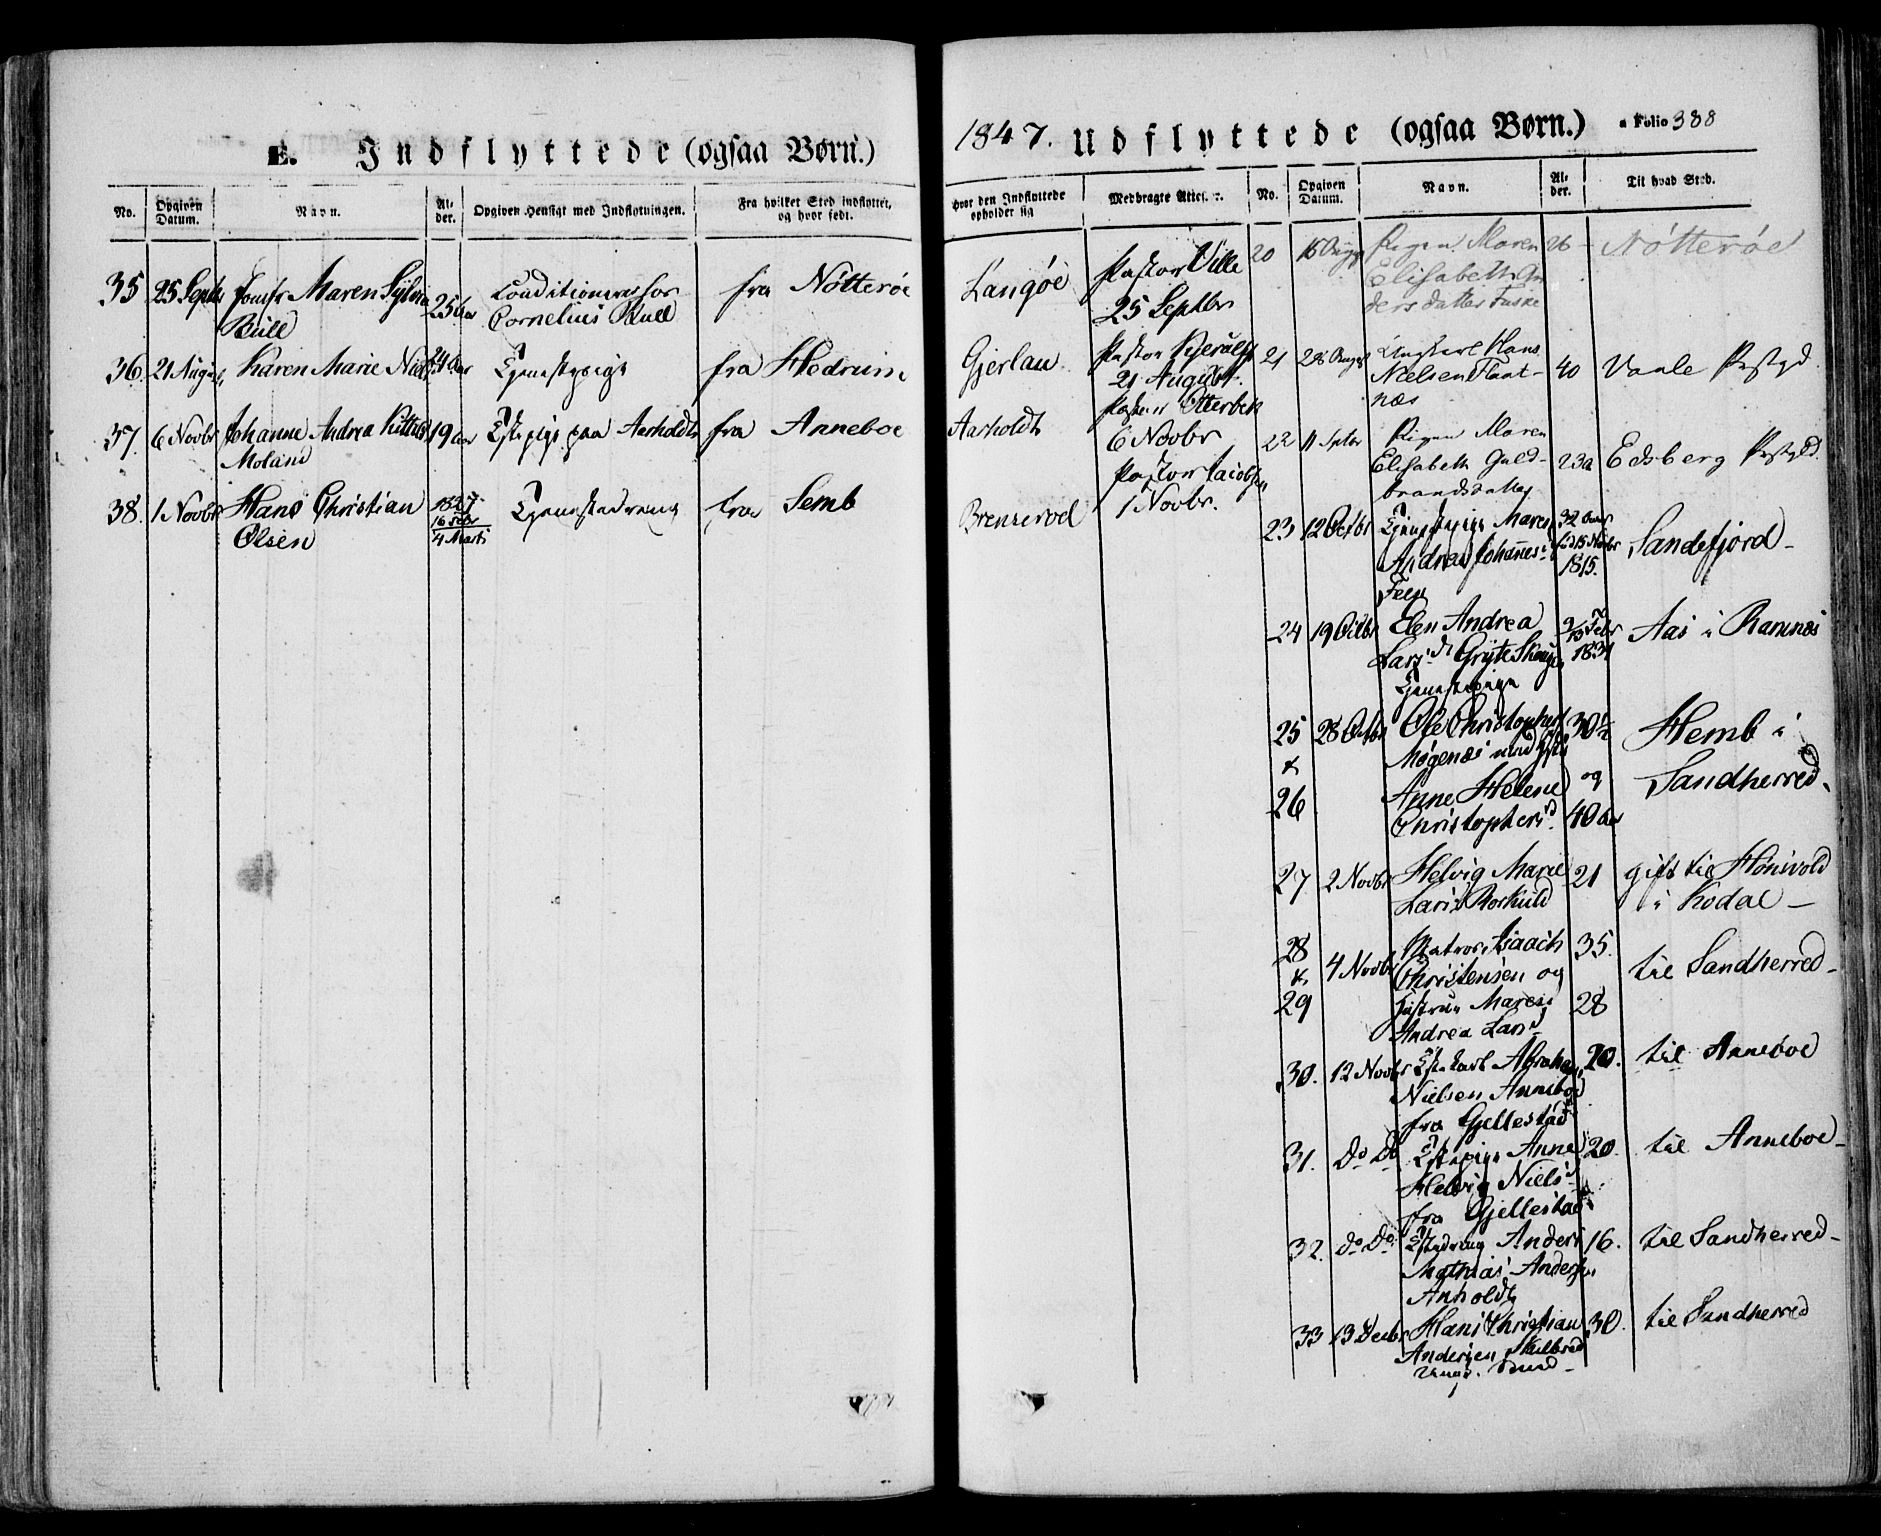 E. Indflyttede (ogsaa Børn.)
No.
Opgiven Datum.
Navn.
Al-
der.
Opgiven Hensigt med Indflytningen.
Fra hvilket Sted indflyttet,
og hvor født.
35 25 Septbr Jomfr Maren Sylvia 25 Aar Conditionerer hos fra Nötteröe
Bull Cornelius Bull
36. 21 August Karen Marie Niels 24 Aar Tjenestepige fra Hedrum
37. 6 Novbr Johanne Andrea 19 Aar Tjstepige paa Aarholdt fra Anneboe
Moland
38. 1 Novbr Hans Christian 1827 Tjenestedreng fra Semb
Olsen 16 Febr
4 Marts
1847. Udflyttede (ogsaa Børn.) a Folio 388
Hvor den Indflyttede
opholder sig
Medbragte Attester.
No.
Opgiven
Datum.
Navn.
Al-
der.
Til hvad Sted.
Langöe
Pastor Wille
25 Septbr
Gjerlau
Pastor Kjerulf
21 August
Aarholdt
Pastor Otterbek
6 Novbr
Brenserod
Pastor Jacobsen
1 Novbr.
20 15 Aug Pigen Maren 26 Nötteröe
Elisabeth An
dersdatter Fuske
21 28 August Ungkarl Hans 40 Vaale Prstgd.
Nielsen Flaat-
næs
22 11 Septbr Pigen Maren 23 a Edsberg Prstgld.
Elisabeth Guld-
brandsdatter
23 12 Octbr Tjenestepige Maren 32 Aar Sandefjord -
Andrea Johannes
Feen 1815.
24 19 Octbr Elen Andrea Febr Aas i Ramnæs
Lars d. Gryte 1831
Tjenestepige
25 28 Octbr Ole Christophers 30 Hemb i
&
Mögenæs med
26 Anne Helene og Sandherred.
Christophersd. 40 Aar
27 2 Novbr Helvig Marie 21 gift til Hönsvold
Larsd i Kodal -
28 Matros Isaach 35.
& 4 Novbr Christensen og til Sandherred -
29 Hustrue Maren 28
Andrea Larsd
30. 12 Novbr Tjstekarl Abraham 20. til Anneboe
Nielsen Anneboe
fra Gjellestad
31. Do Do Tjstepige Anne 20. til Anneboe -
Helvig Nielsd
fra Gjellestad
32. Do Do Tjstedreng Anders 16. til Sandherred -
Mathias Andersen
Anholdt
33 13 Decbr Hans Christian 30. til Sandherred
Andersen Skelbred